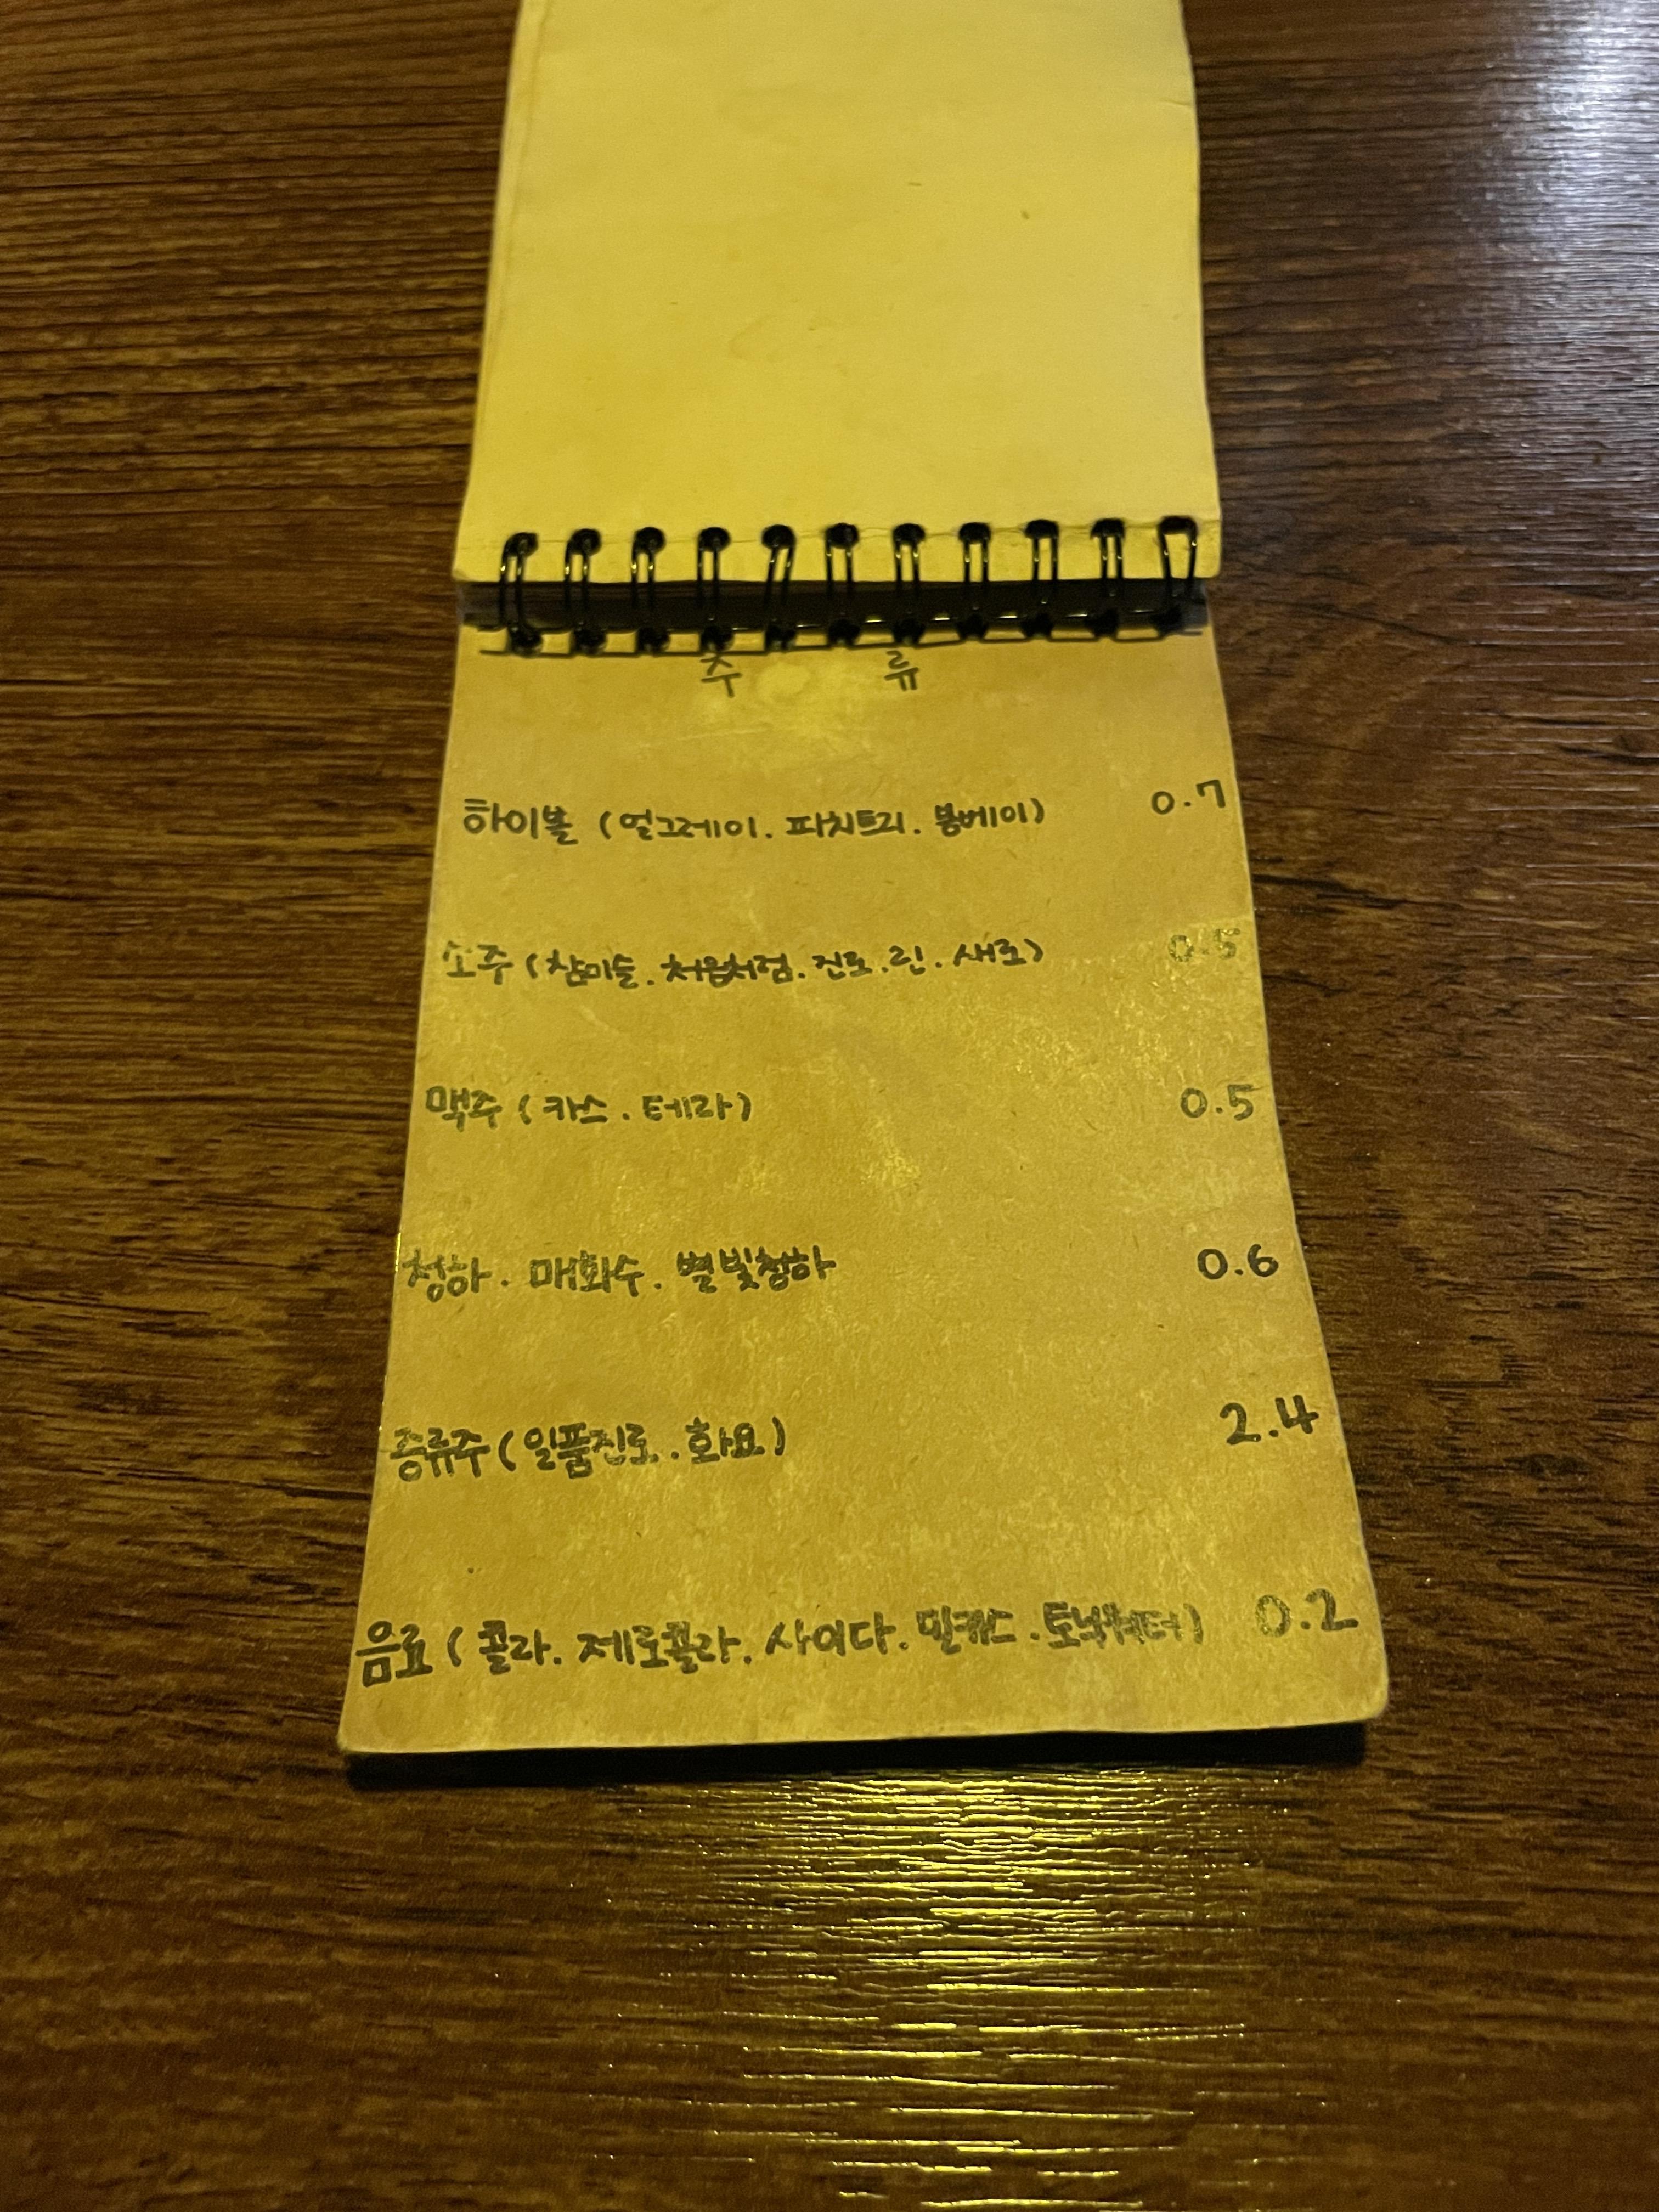 주 류
하이볼 (얼그레이. 피치트리. 봄베이) 0.7
소주 (참이슬. 처음처럼. 진로. 린. 새로) 0.5
맥주 (카스. 테라) 0.5
청하. 매화수. 별빛청하 0.6
증류주 (일품진로. 화요) 2.4
음료 (콜라. 제로콜라. 사이다. 밀키스. 토닉워터) 0.2